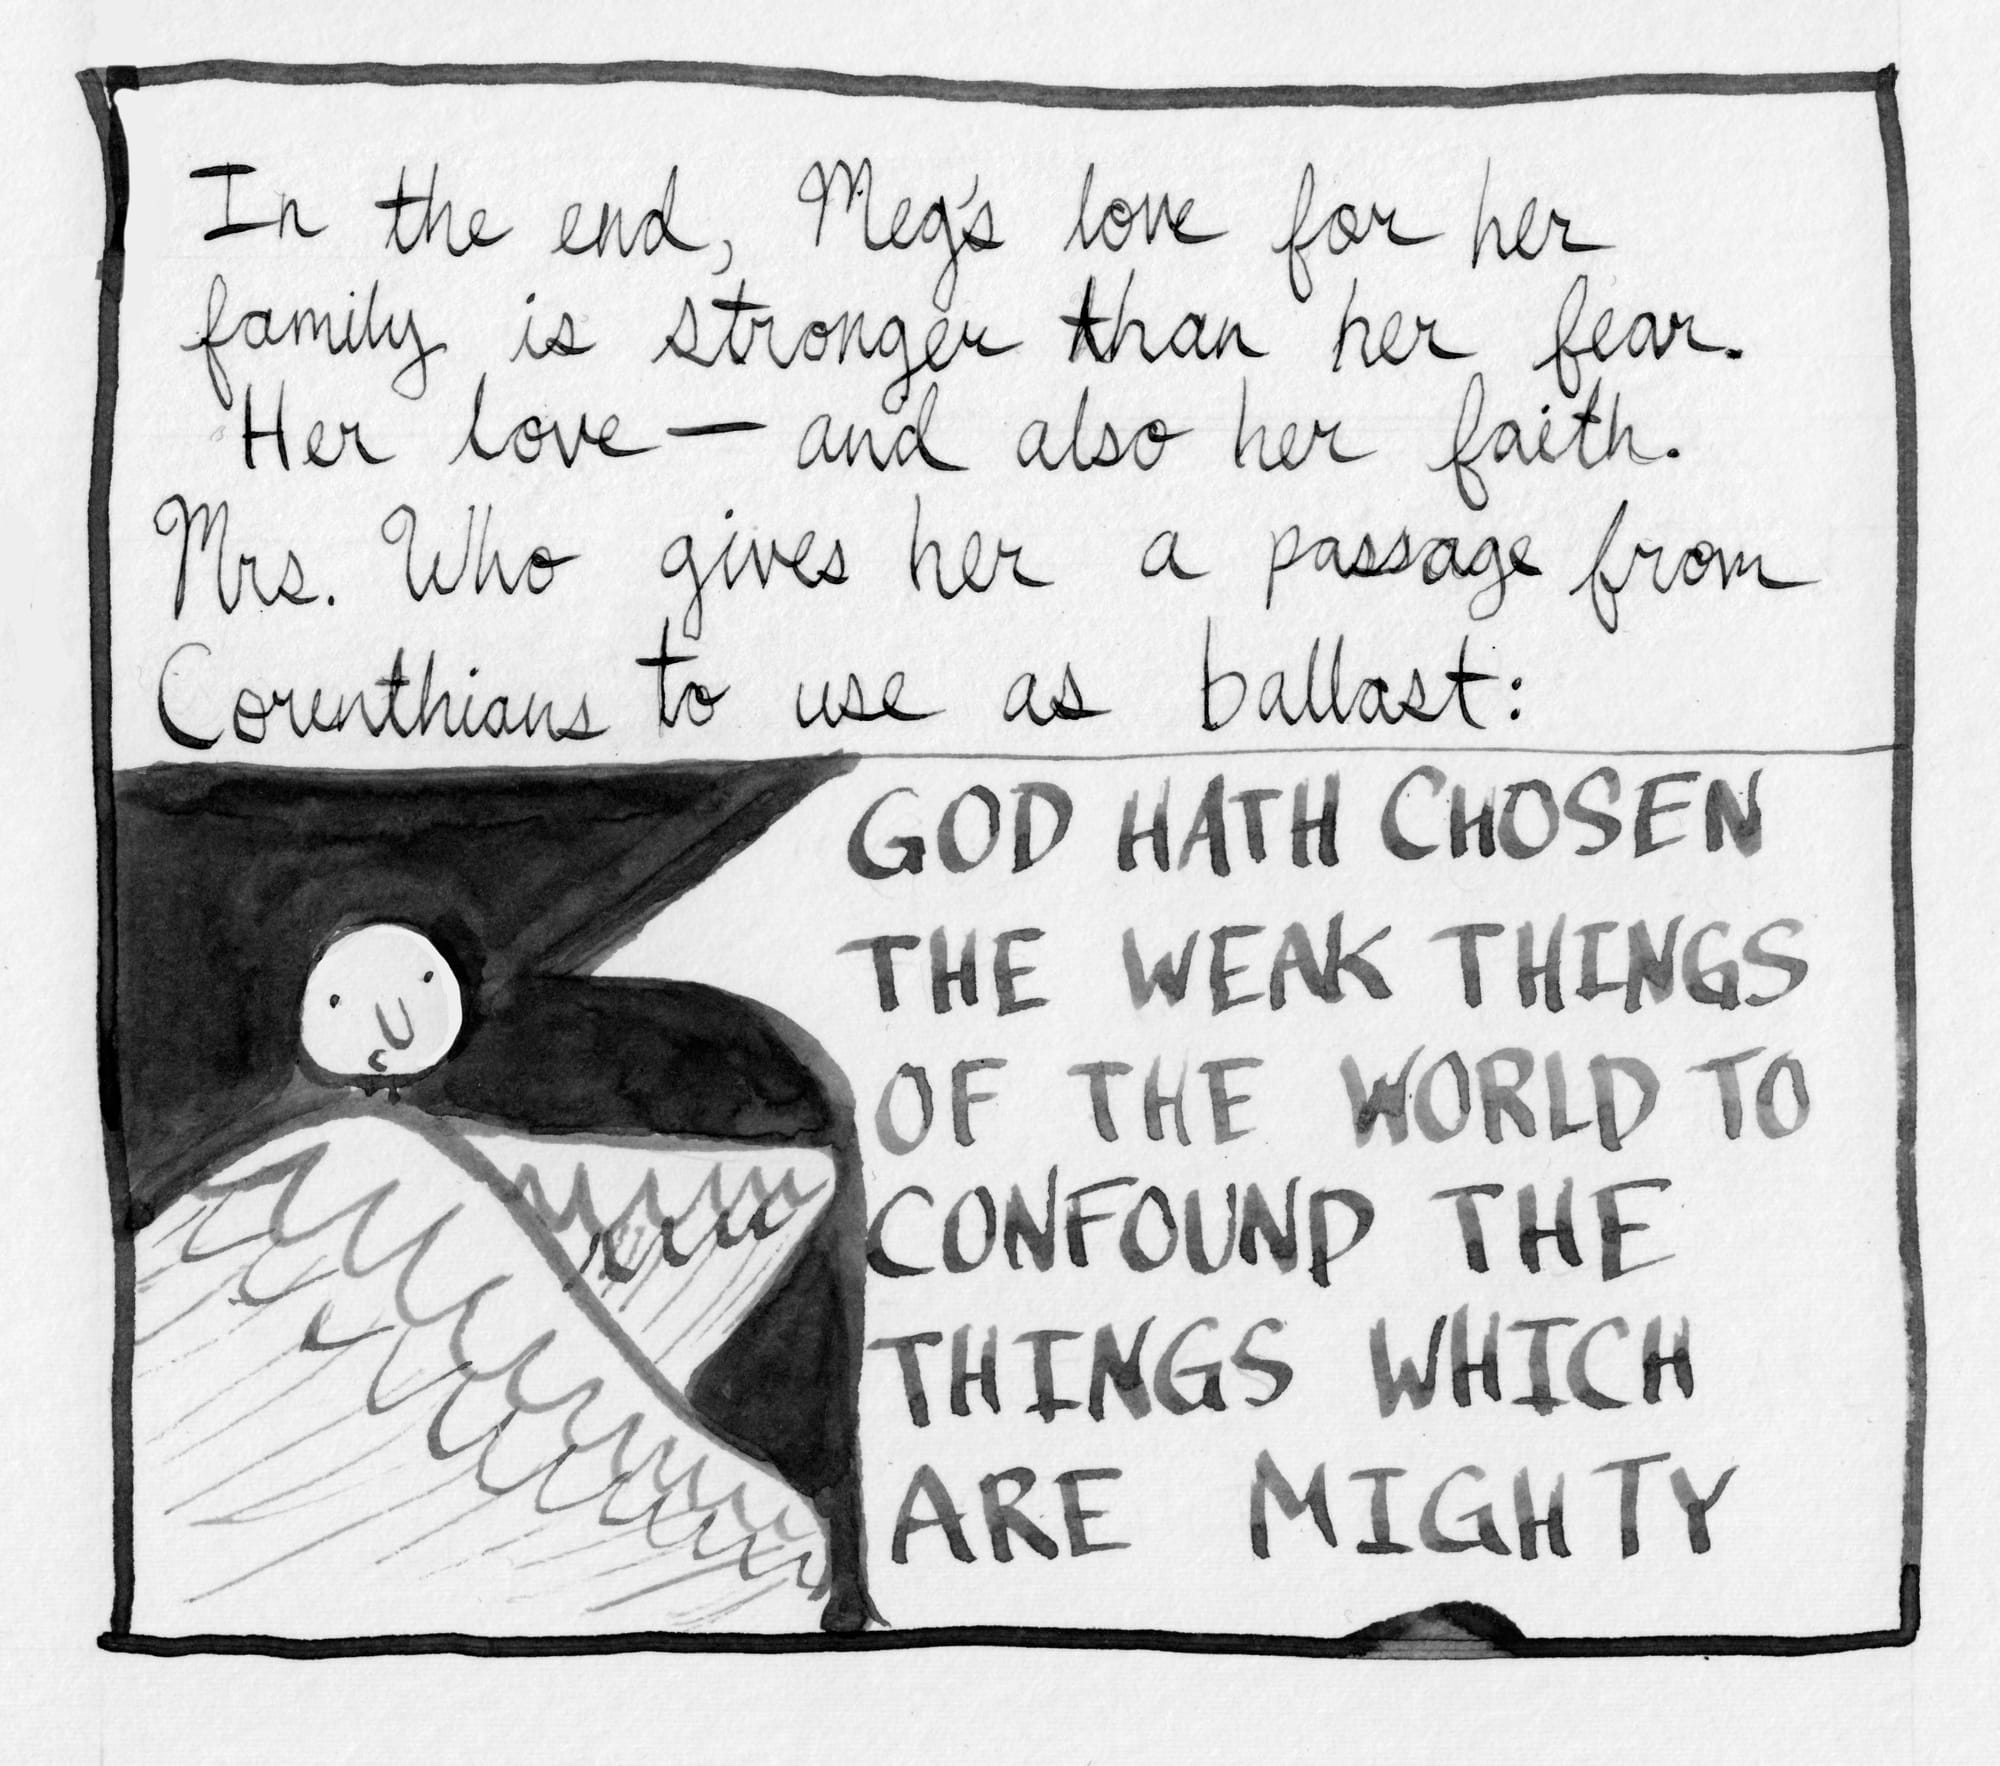 In the end, Meg's love for her
family is stronger than her fear.
Her love — and also her faith.
Mrs. Who gives her a passage from
Corenthians to use as ballast:
GOD HATH CHOSEN
THE WEAK THINGS
OF THE WORLD TO
CONFOUND THE
THINGS WHICH
ARE MIGHTY